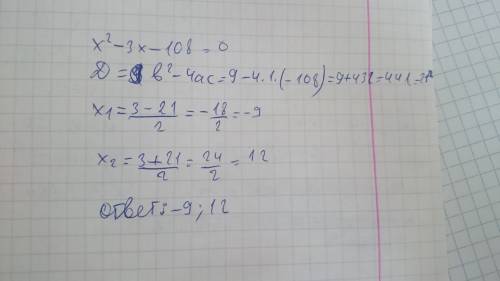 x² - 3x - 108 = 0
D = b² - 4ac = 9 - 4 · 1 · (-108) = 9 + 432 = 441 = 21²
x1 = (3 - 21)/2 = -18/2 = -9
x2 = (3 + 21)/2 = 24/2 = 12
ответ: -9; 12